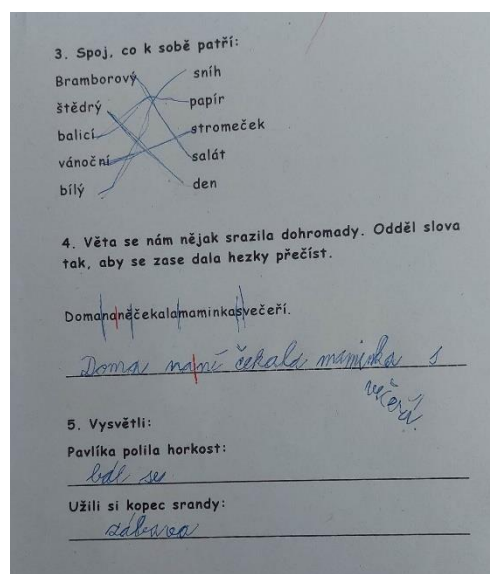 3. Spoj, co k sobě patří:
Bramborový sníh
štědrý papír
balicí stromeček
vánoční salát
bílý den
4. Věta se nám nějak srazila dohromady. Odděl slova
tak, aby se zase dala hezky přečíst.
Domananěčekalamaminkasvečeří.
Doma naní čekala maminka s
večeří.
5. Vysvětli:
Pavlíka polila horkost:
bál se
Užili si kopec srandy:
zábava